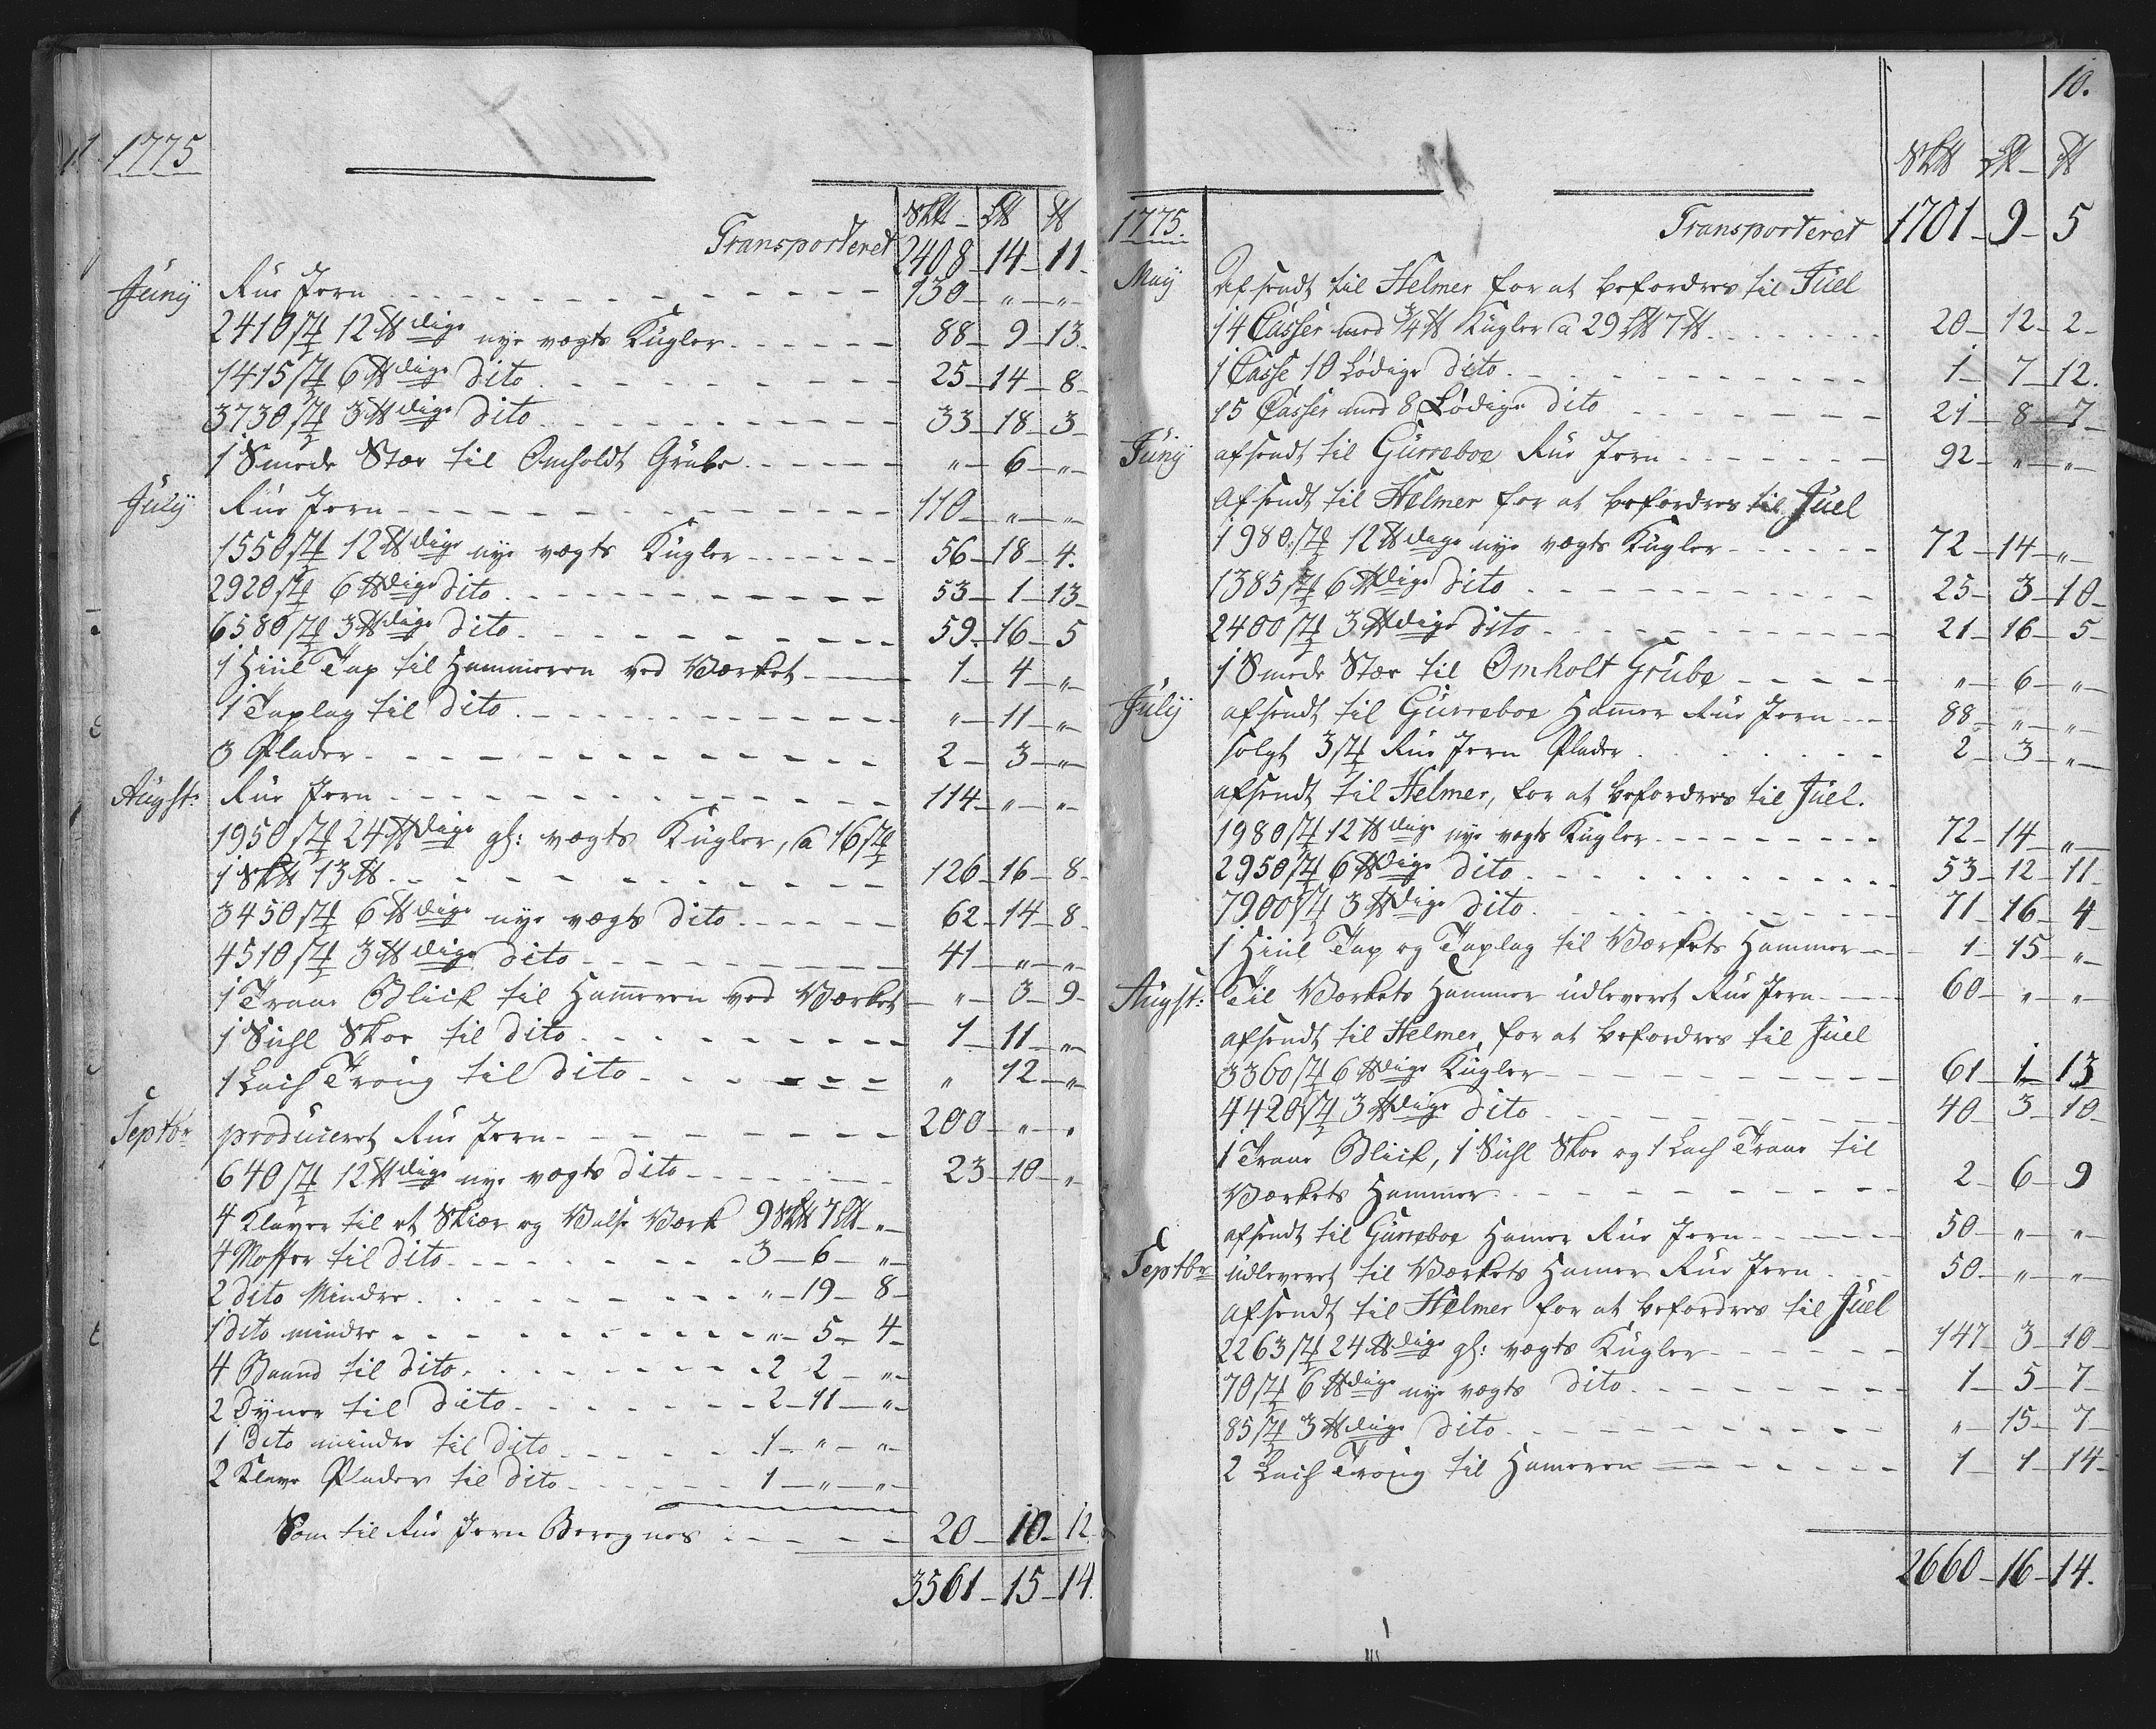 1775
Sk℔ - L℔ ℔
Transporteret 2408 - 14 - 11 -
Junÿ Rue Jern - - - 130 - " - " -
2410 st 12 ℔dige nye vægts Kugler - - - 88 - 9 - 13 -
1415 st 6 ℔dige dito - - - 25 - 14 - 8 -
3730 st 3 ℔dige dito - - - 33 - 18 - 3 -
1 Smede Stæe til Omholdt Grube - - - " - 6 - " -
Julÿ Rue Jern - - - 110 - " - " -
1550 st 12 ℔dige nye vægts Kugler - - - 56 - 18 - 4.
2920 st 6 ℔dige dito - - - 53 - 1 - 13 -
6580 st 3 ℔dige dito - - - 59 - 16 - 5
1 Hiül Tap til Hammeren ved Værket - - - 1 - 4 - " -
1 Taplag til dito - - - " - 11 - " -
3 Plader - - - 2 - 3 - " -
Augst: Rue Jern - - - 114 - " - " -
1950 st 24 ℔dige gl: vægts Kugler, a 16 st
1 Sk℔ 13 ℔ - - - 126 - 16 - 8 -
3450 st 6 ℔dige nye vægts dito - - - 62 - 14 - 8 -
4510 st 3 ℔dige dito - - - 41 - " - " -
1 Traae Blick til Hameren ved Værket - " - 3 - 9 -
1 Suhl Skoe til dito - - - 1 - 11 - " -
1 Troüg til dito - - - " 12 - " -
Septbr produceret Rue Jern - - - 200 - " - "
640 st 12 ℔dige nye vægts dito - - - 23 - 10 - "
4 Klaver til et Skiær og Valse Værk 9 Sk℔ 7 L℔ - " -
4 Moffer til dito - - - 3 - 6 - " -
2 dito Mindre - - - " - 19 - 8 -
1 dito mindre - - - " - 5 - 4 -
4 Baand til dito - - - 2 2 - " -
2 Dÿner til dito - - - 2 - 11 - " -
1 dito mindre til dito - - - 1 - " - " -
2 Klave Plader til dito - - - 1 - " - " -
Som til Rue Jern Beregnes - - - 20 - 10 - 12.
3561 - 15 - 14.
10.
Sk℔ L℔ - ℔
1775. Transporteret 1701 - 9 - 5
Maÿ Afsendt til Helmer for at befordres til Juel
14 Casser med 3/4 ℔ Kugler a 29 L℔ 7 ℔ - - - 20 - 12 - 2 -
1 Casse 10 Lødige dito - - - 1 - 7 - 12.
15 Casser med 8 Lødige dito - - - 21 - 8 - 7 -
Junÿ afsendt til Gurreboe Rue Jern - - - 92 - " - " -
Afsendt til Helmer for at befordres til Juel
1980 st 12 ℔dige nye vægts Kugler - - - 72 - 14 - " -
1385 st 6 ℔dige dito - - - 25 - 3 - 10 -
2400 st 3 ℔dige dito - - - 21 - 16 - 5 -
1 Smede Stæe til Omholt Grube - - - " - 6 - " -
Julÿ afsendt til Gurreboe Hamer Rue Jern - - - 88 - " - " -
solgt 3 st Rue Jern Plader - - - 2 - 3 - " -
afsendt til Helmer, for at befordres til Juel.
1980 st 12 ℔dige nye vægts Kugler - - - 72 - 14 - " -
2950 st 6 ℔dige dito - - - 53 - 12 - 11 -
7900 st 3 ℔dige dito - - - 71 - 16 - 4 -
1 Hiül Tap og Taplag til Værkets Hammer - - - 1 - 15 - " -
Augst: Til Værkets Hammer udleveret Rue Jern - - - 60 - " - " -
afsendt til Helmer, for at befordres til Juel
3360 st 6 ℔dige Kugler - - - 61 - 1 - 13
4420 st 3 ℔dige dito - - - 40 - 3 - 10 -
1 Traae Blick, 1 Suhl Skoe og 1 Traae til
Værkets Hammer - - - 2 - 6 - 9
afsendt til Gurreboe Hamer Rue Jern - - - 50 - " - " -
Septbr udleveret til Værkets Hamer Rue Jern - - - 50 - " - " -
afsendt til Helmer for at befordres til Juel
2263 st 24 ℔dige gl: vægts Kugler - - - 147 - 3 - 10 -
70 st 6 ℔dige nye vægts dito - - - 1 - 5 - 7 -
85 st 3 ℔dige dito - - - " - 15 - 7 -
2 Troüg til Hameren - - - 1 - 1 - 14 -
2660 - 16 - 14.